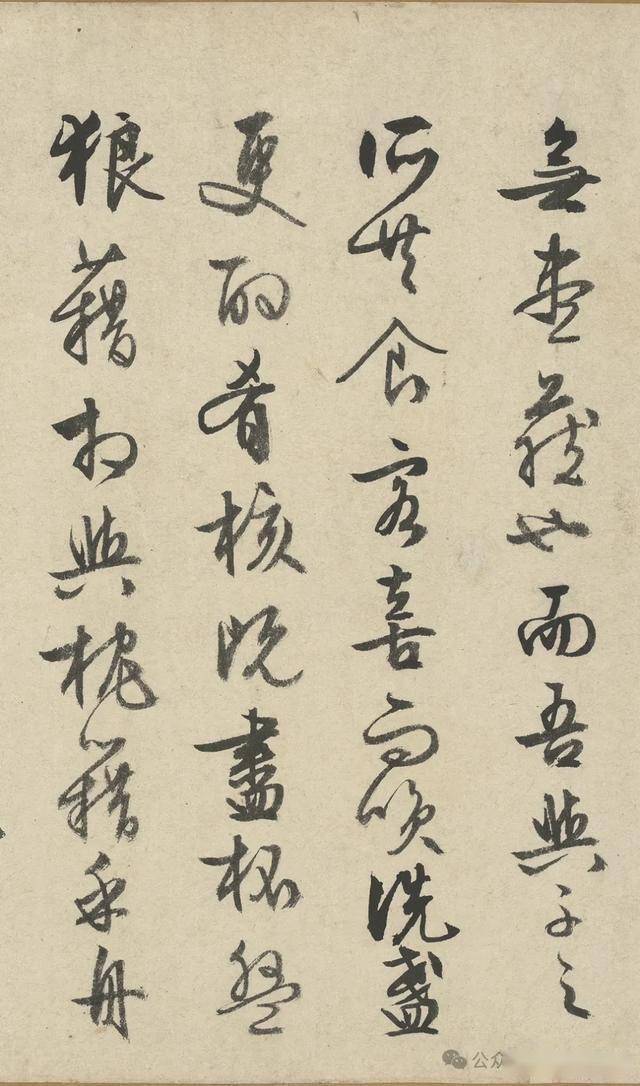 無盡藏也而吾與子之
所共食客喜而笑洗盞
更酌肴核既盡杯盤
狼藉相與枕籍乎舟
公众